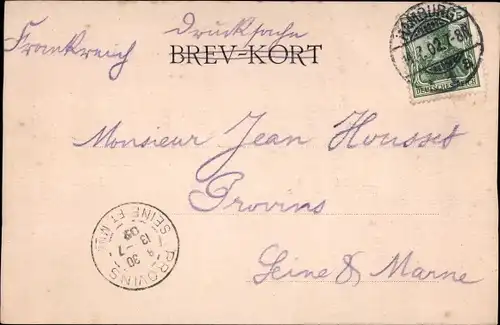 Drucksache
Frankreich
BREV-KORT
HAMBURG
.7.02.
DEUTSCHES REICH
Monsieur Jean Housset
Provins
Seine & Marne
PROVINS
8 30
13 -7
02
SEINE ET MNE